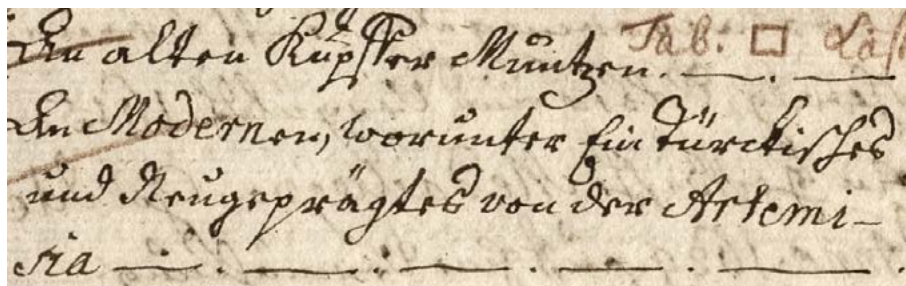 An alten Kupffer Müntzen. Tab: □
An Modernen, worunter Ein türckisches
und Neugeprägtes von der Artemi-
sia